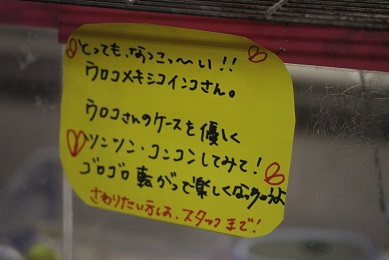 とっても、なつこ〜い!!
ウロコメキシコインコさん。
ウロコさんのケースを優しく
ツンツン・コンコンしてみて!
ゴロゴロ転がって楽しくなっちゃうよ
さわりたい方は、スタッフまで!